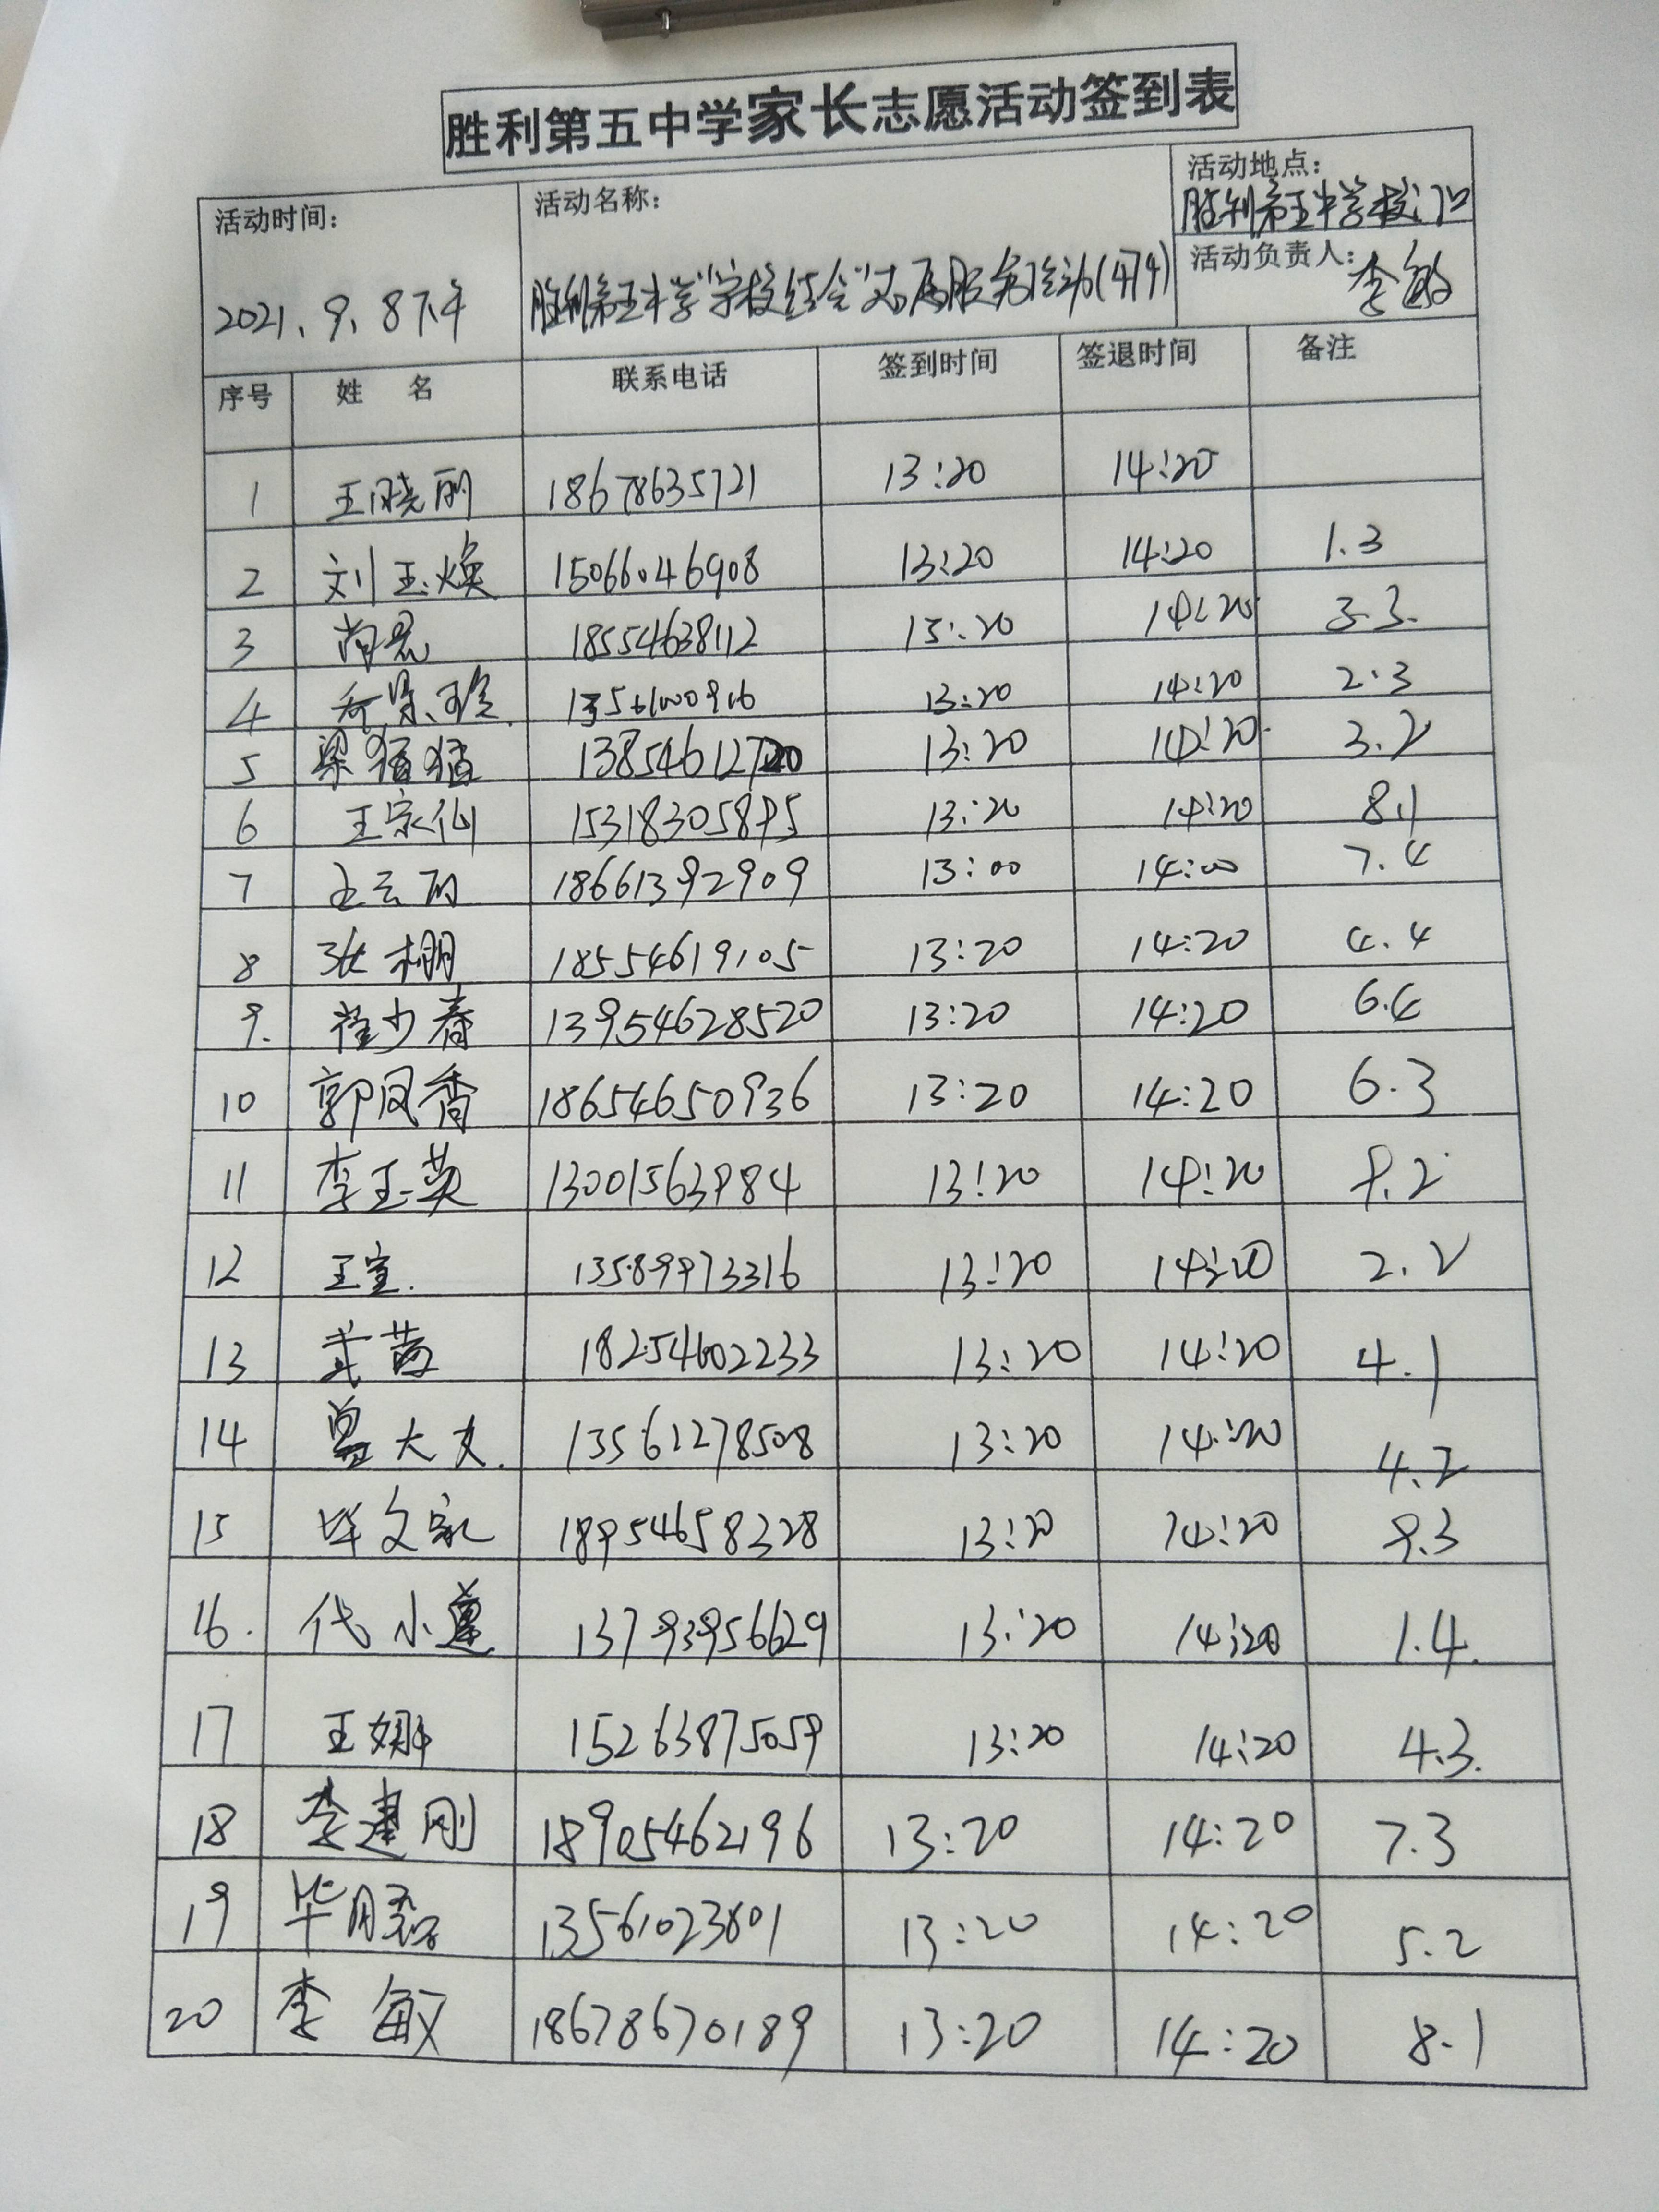 胜利第五中学家长志愿活动签到表
活动时间: 活动名称: 活动地点:
胜利第五中学校门口
2021.9.8下午 胜利第五中学"学校结合"志愿服务活动(479) 活动负责人: 李敏
序号 姓 名 联系电话 签到时间 签退时间 备注
1 王晓丽 18678635721 13:20 14:20
2 刘玉焕 15066046908 13:20 14:20 1.3
3 尚恩 18554638112 13:20 14:20 3.3.
4 13561000916 13:20 14:20 2.3
5 梁猛猛 13854612720 13:20 14:20 3.2
6 王家仙 15318305895 13:20 14:20 8.1
7 王云丽 18661392909 13:00 14:00 7.4
8 张棚 18554619105 13:20 14:20 4.4
9. 程少春 13954628520 13:20 14:20 6.4
10 郭凤香 18654650936 13:20 14:20 6.3
11 李玉英 13001563984 13:20 14:20 9.2
12 王宣. 13589973316 13:20 14:20 2.2
13 武茜 18254602233 13:20 14:20 4.1
14 曾大文. 13561278508 13:20 14:20 4.2
15 毕文家 18954658328 13:20 14:20 9.3
16. 代小莲 13793956629 13:20 14:20 1.4.
17 王娜 15263875059 13:20 14:20 4.3.
18 李建刚 18905462196 13:20 14:20 7.3
19 毕月磊 13561023801 13:20 14:20 5.2
20 李敏 18678670189 13:20 14:20 8.1